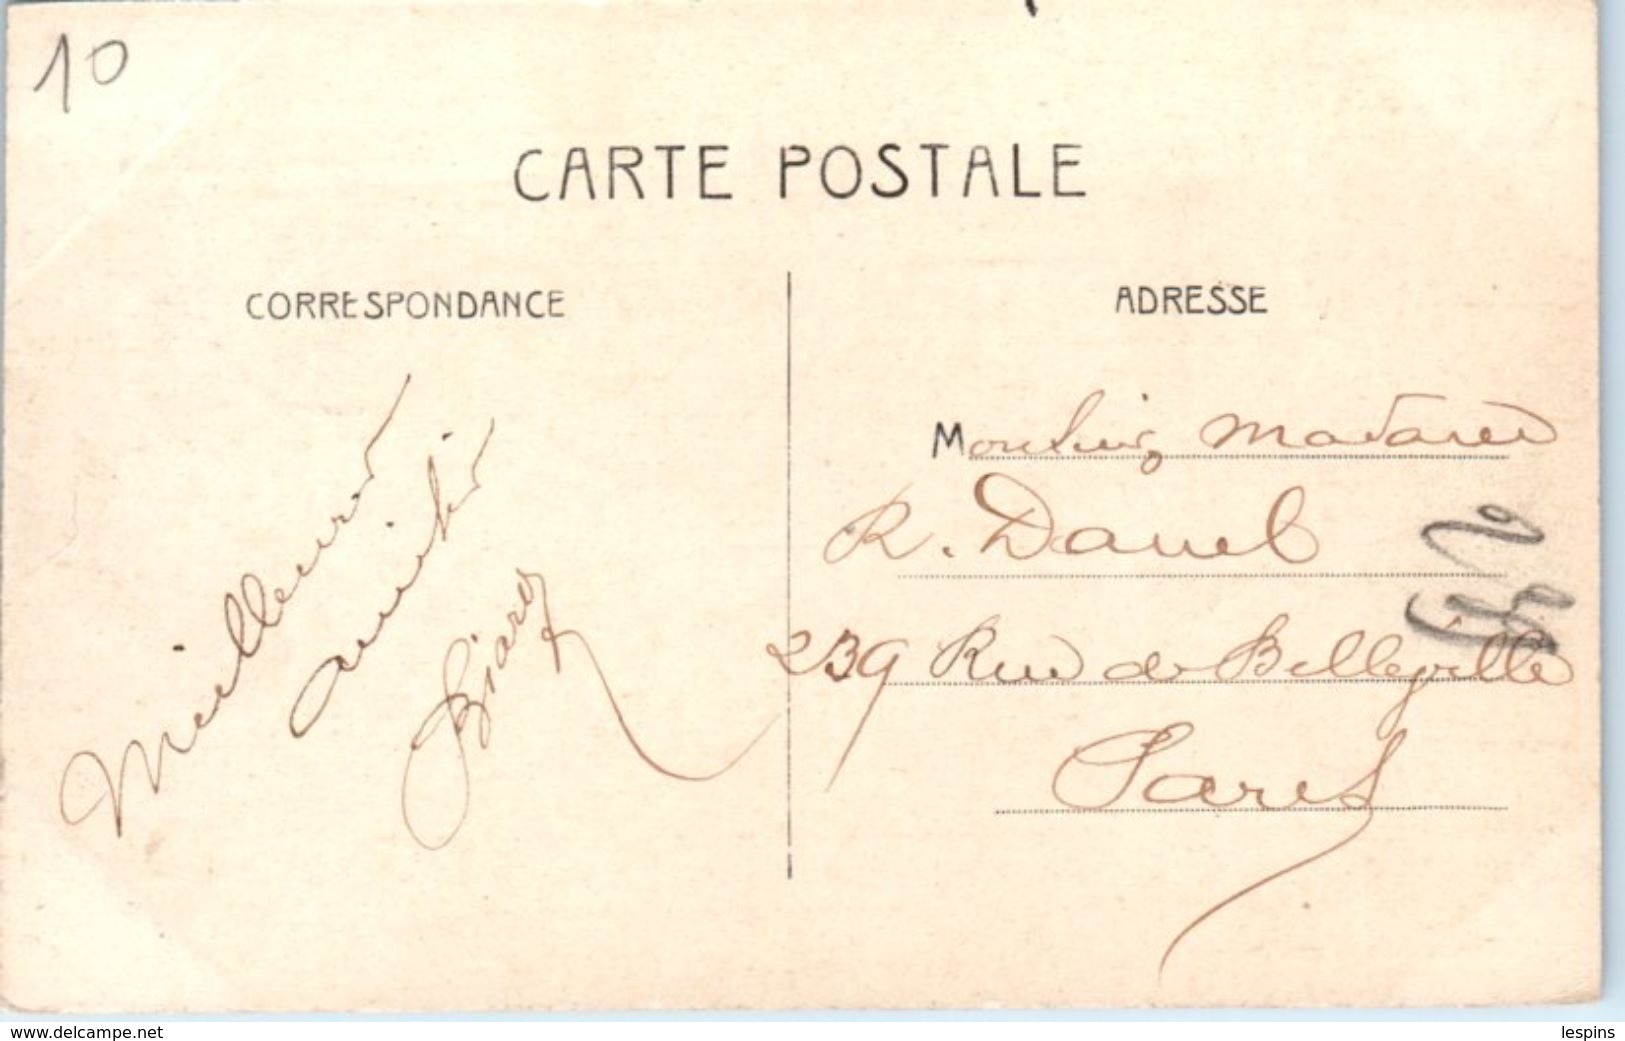 10
CARTE POSTALE
CORRESPONDANCE
ADRESSE
Meilleures
amitiés
Monsieur, Madame
R. Danel
239 Rue de Belleville
Paris
www.delcampe.net
lespins